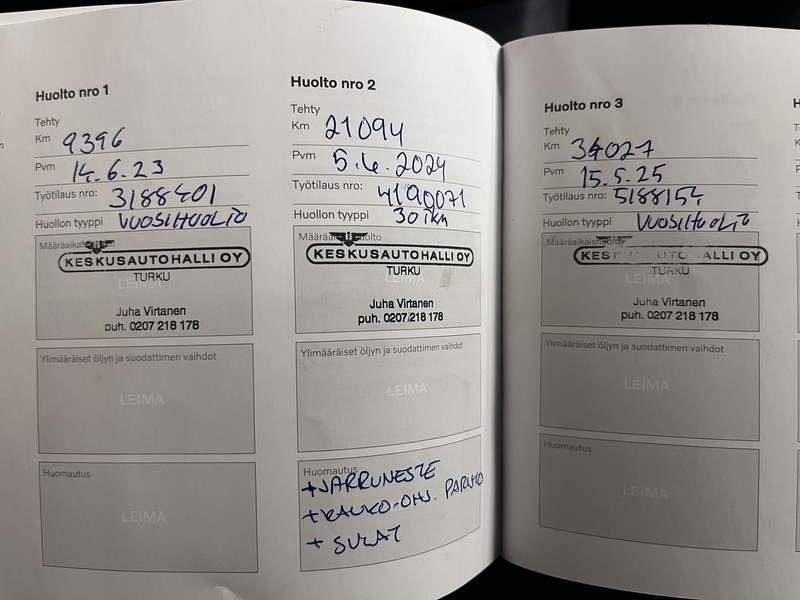 Huolto nro 1
Tehty
Km 9396
Pvm 14.6.23
Työtilaus nro: 3188401
Huollon tyyppi VUOSIHUOLTO
Määräaikaishuolto
KESKUSAUTOHALLI OY
TURKU
LEIMA
Juha Virtanen
puh. 0207 218 178
Ylimääräiset öljyn ja suodattimen vaihdot
LEIMA
Huomautus
LEIMA
Huolto nro 2
Tehty
Km 21094
Pvm 5.6.2024
Työtilaus nro: 4190071
Huollon tyyppi 30tkm
Määräaikaishuolto
KESKUSAUTOHALLI OY
TURKU
LEIMA
Juha Virtanen
puh. 0207 218 178
Ylimääräiset öljyn ja suodattimen vaihdot
LEIMA
Huomautus
+JARRUNESTE
+KAUKO-OHJ. PARISTO
+ SULAT
Huolto nro 3
Tehty
Km 34027
Pvm 15.5.25
Työtilaus nro: 5188154
Huollon tyyppi VUOSIHUOLTO
Määräaikaishuolto
KESKUSAUTOHALLI OY
TURKU
LEIMA
Juha Virtanen
puh. 0207 218 178
Ylimääräiset öljyn ja suodattimen vaihdot
LEIMA
LEIMA